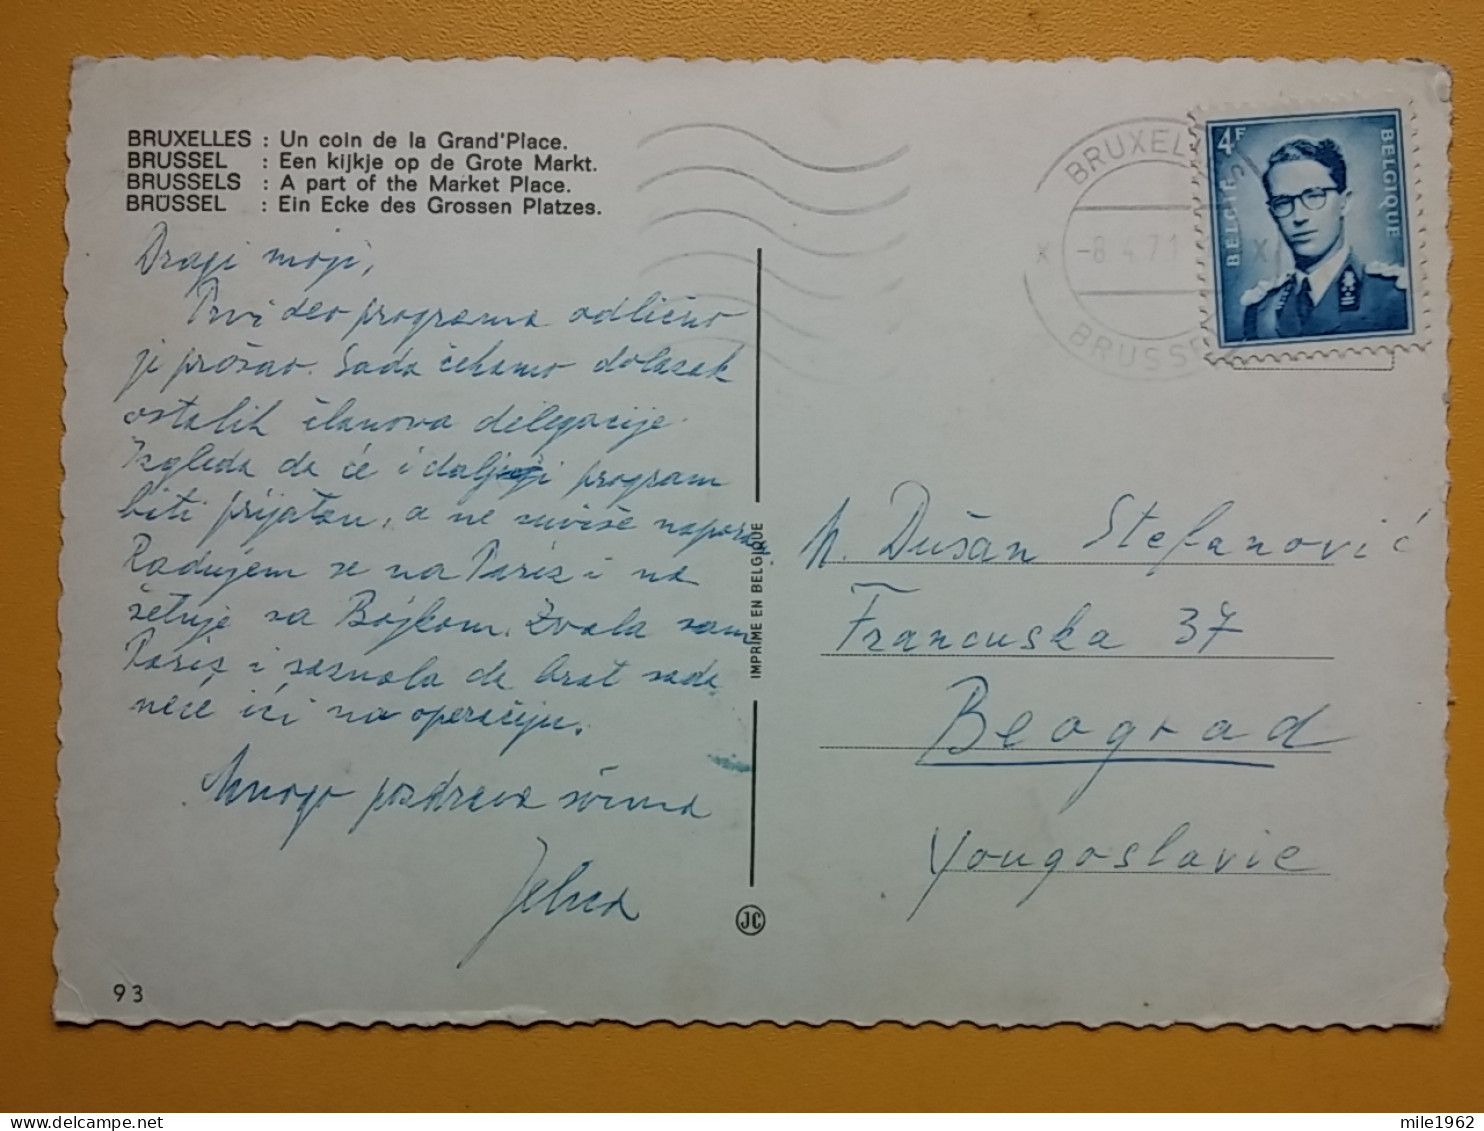 BRUXELLES : Un coin de la Grand'Place.
BRUSSEL : Een kijkje op de Grote Markt.
BRUSSELS : A part of the Market Place.
BRÜSSEL : Ein Ecke des Grossen Platzes.
Dragi moji,
Prvi deo programa odlično
je prošao. Sada čekamo dolazak
ostalih članova delegacije.
Izgleda da će i daljnji program
biti prijatan, a ne suviše naporan
Radujem se na Pariz i na
šetnje sa Bojkom. Zvala sam
Pariz i saznala da brat sada
neće ići na operaciju.
Mnogo pozdrava svima
93
IMPRIME EN BELGIQUE
JC
BRUXELLES
-8.4.71
BRUSSEL
4F
BELGIË
BELGIQUE
M. Dušan Stefanović
Francuska 37
Beograd
Yougoslavie
mile1962